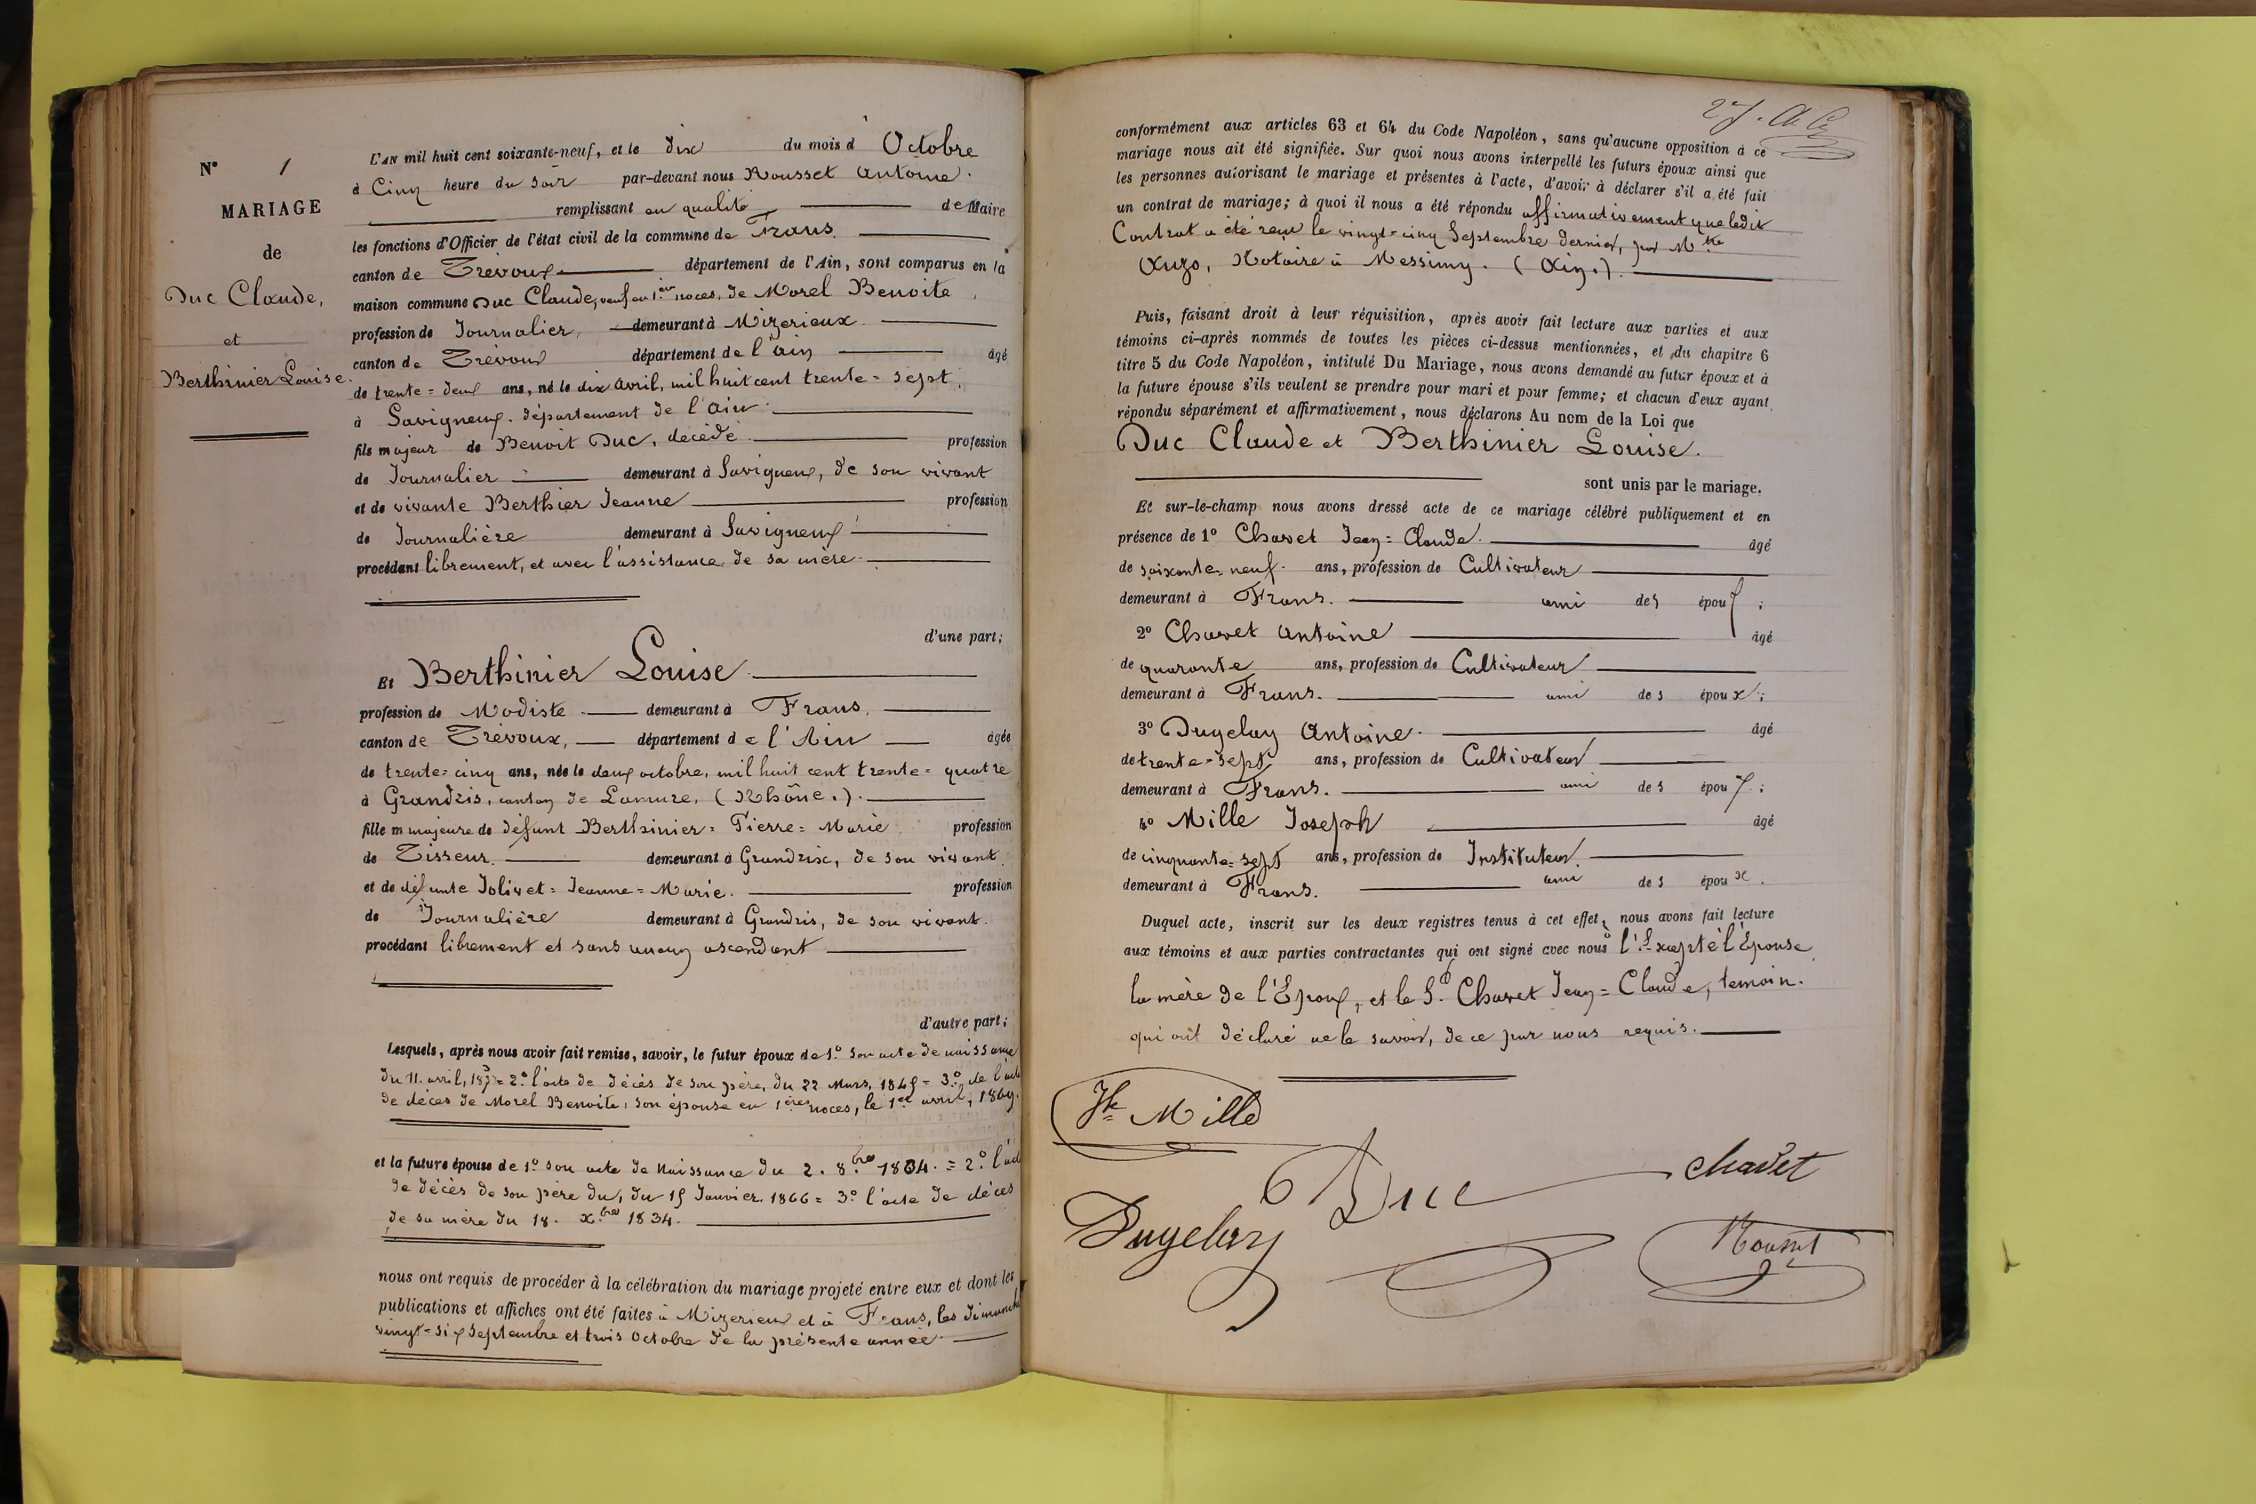 N° 1
MARIAGE
de
Duc Claude,
et
Berthinier Louise.
L'AN mil huit cent soixante-neuf, et le dix du mois d'Octobre
à Cinq heure du Soir par-devant nous Rousset Antoine.
remplissant en qualité de Maire
les fonctions d'Officier de l'état civil de la commune de Frans.
canton de Trévoux département de l'Ain, sont comparus en la
maison commune Duc Claude, veuf en 1ères noces, de Morel Benoite,
profession de Journalier, demeurant à Mizerieux
canton de Trévoux département de l'Ain âgé
de trente=deux ans, né le dix Avril, mil huit cent trente=sept,
à Savigneux. département de l'Ain.
fils majeur de Benoit Duc, décédé profession
de Journalier demeurant à Savigneux, de son vivant
et de vivante Berthier Jeanne profession
de Journalière demeurant à Savigneux
procédant librement, et avec l'assistance de sa mère.
d'une part;
Et Berthinier Louise
profession de Modiste demeurant à Frans.
canton de Trévoux, département de l'Ain âgée
de trente=cinq ans, née le deux octobre, mil huit cent trente=quatre
à Grandris, canton de Lamure, (Rhône.).
fille m majeure de défunt Berthinier=Pierre=Marie profession
de Tisseur. demeurant à Grandrix, de son vivant
et de défunte Jolivet=Jeanne=Marie. profession
de Journalière demeurant à Grandris, de son vivant.
procédant librement et sans aucun ascendant
d'autre part;
Lesquels, après nous avoir fait remise, savoir, le futur époux de 1.° Son acte de naissance
du 11. avril, 1837=2.° l'acte de décès de son père, du 22 Mars, 1845=3.° de l'acte
de décès de Morel Benoite, son épouse en 1ères noces, le 1er avril, 1869.
et la future épouse de 1.° son acte de Naissance du 2. 8.bre 1834.=2.° l'acte
de décès de son père du, du 15 Janvier. 1866=3.° l'acte de décès
de sa mère du 18. x.bre 1834.
nous ont requis de procéder à la célébration du mariage projeté entre eux et dont les
publications et affiches ont été faites à Mizerieux et à Frans, les dimanche
vingt=six Septembre et trois Octobre de la présente année
27.
conformément aux articles 63 et 64 du Code Napoléon, sans qu'aucune opposition à ce
mariage nous ait été signifiée. Sur quoi nous avons interpellé les futurs époux ainsi que
les personnes autorisant le mariage et présentes à l'acte, d'avoir à déclarer s'il a été fait
un contrat de mariage; à quoi il nous a été répondu affirmativement que ledit
Contrat a été reçu le vingt=cinq Septembre dernier, par Mtre
Auzo, Notaire à Messimy. (Ain.).
Puis, faisant droit à leur réquisition, après avoir fait lecture aux parties et aux
témoins ci-après nommés de toutes les pièces ci-dessus mentionnées, et du chapitre 6
titre 5 du Code Napoléon, intitulé Du Mariage, nous avons demandé au futur époux et à
la future épouse s'ils veulent se prendre pour mari et pour femme; et chacun d'eux ayant
répondu séparément et affirmativement, nous déclarons Au nom de la Loi que
Duc Claude et Berthinier Louise.
sont unis par le mariage.
Et sur-le-champ nous avons dressé acte de ce mariage célébré publiquement et en
présence de 1° Chavet Jean=Claude. âgé
de soixante=neuf. ans, profession de Cultivateur
demeurant à Frans. ami des époux;
2° Chavet Antoine âgé
de quarante ans, profession de Cultivateur
demeurant à Frans. ami des époux;
3° Dugelay Antoine. âgé
de trente=sept ans, profession de Cultivateur
demeurant à Frans. ami des époux;
4° Mille Joseph âgé
de cinquante=sept ans, profession de Instituteur.
demeurant à Frans. ami des époux.
Duquel acte, inscrit sur les deux registres tenus à cet effet, nous avons fait lecture
aux témoins et aux parties contractantes qui ont signé avec nous à l'Excepté l'Épouse
la mère de l'Époux, et le S.d Chavet Jean=Claude, temoin.
qui ont déclaré ne le savoir, de ce par nous requis.
Jh Mille
Duc
Chavet
Dugelay
Rousset